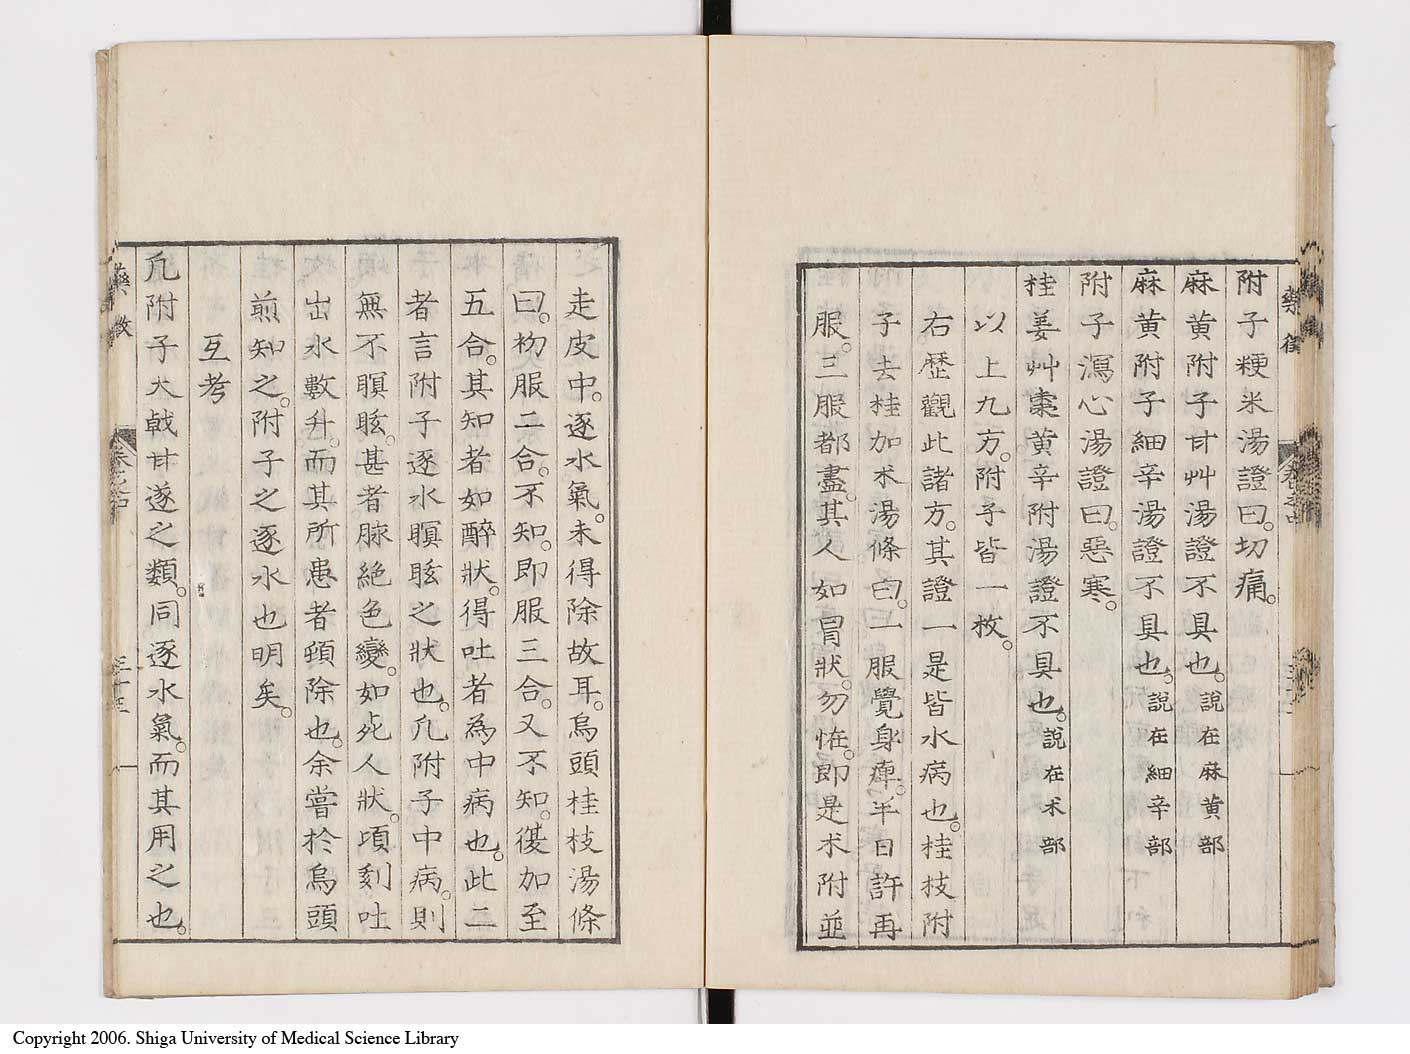 附子粳米湯證曰。切痛。
麻黃附子甘艸湯證不具也。說在麻黃部
麻黃附子細辛湯證不具也。說在細辛部
附子瀉心湯證曰。惡寒。
桂姜艸棗黃辛附湯證不具也。說在朮部
以上九方。附子皆一枚。
右歷觀此諸方。其證一是皆水病也。桂枝附
子去桂加朮湯條曰。一服覺身痺。半日許再
服。三服都盡。其人如冒狀。勿恠。即是朮附並
走皮中。逐水氣。未得除故耳。烏頭桂枝湯條
曰。初服二合。不知。即服三合。又不知。復加至
五合。其知者如醉狀。得吐者為中病也。此二
者言附子逐水瞑眩之狀也。凡附子中病。則
無不瞑眩。甚者脉絕色變。如死人狀。頃刻吐
出水數升。而其所患者頓除也。余嘗於烏頭
煎知之。附子之逐水也明矣。
互考
凡附子大戟甘遂之類。同逐水氣。而其用之也。
藥徵
卷之四
三十三
Copyright 2006. Shiga University of Medical Science Library